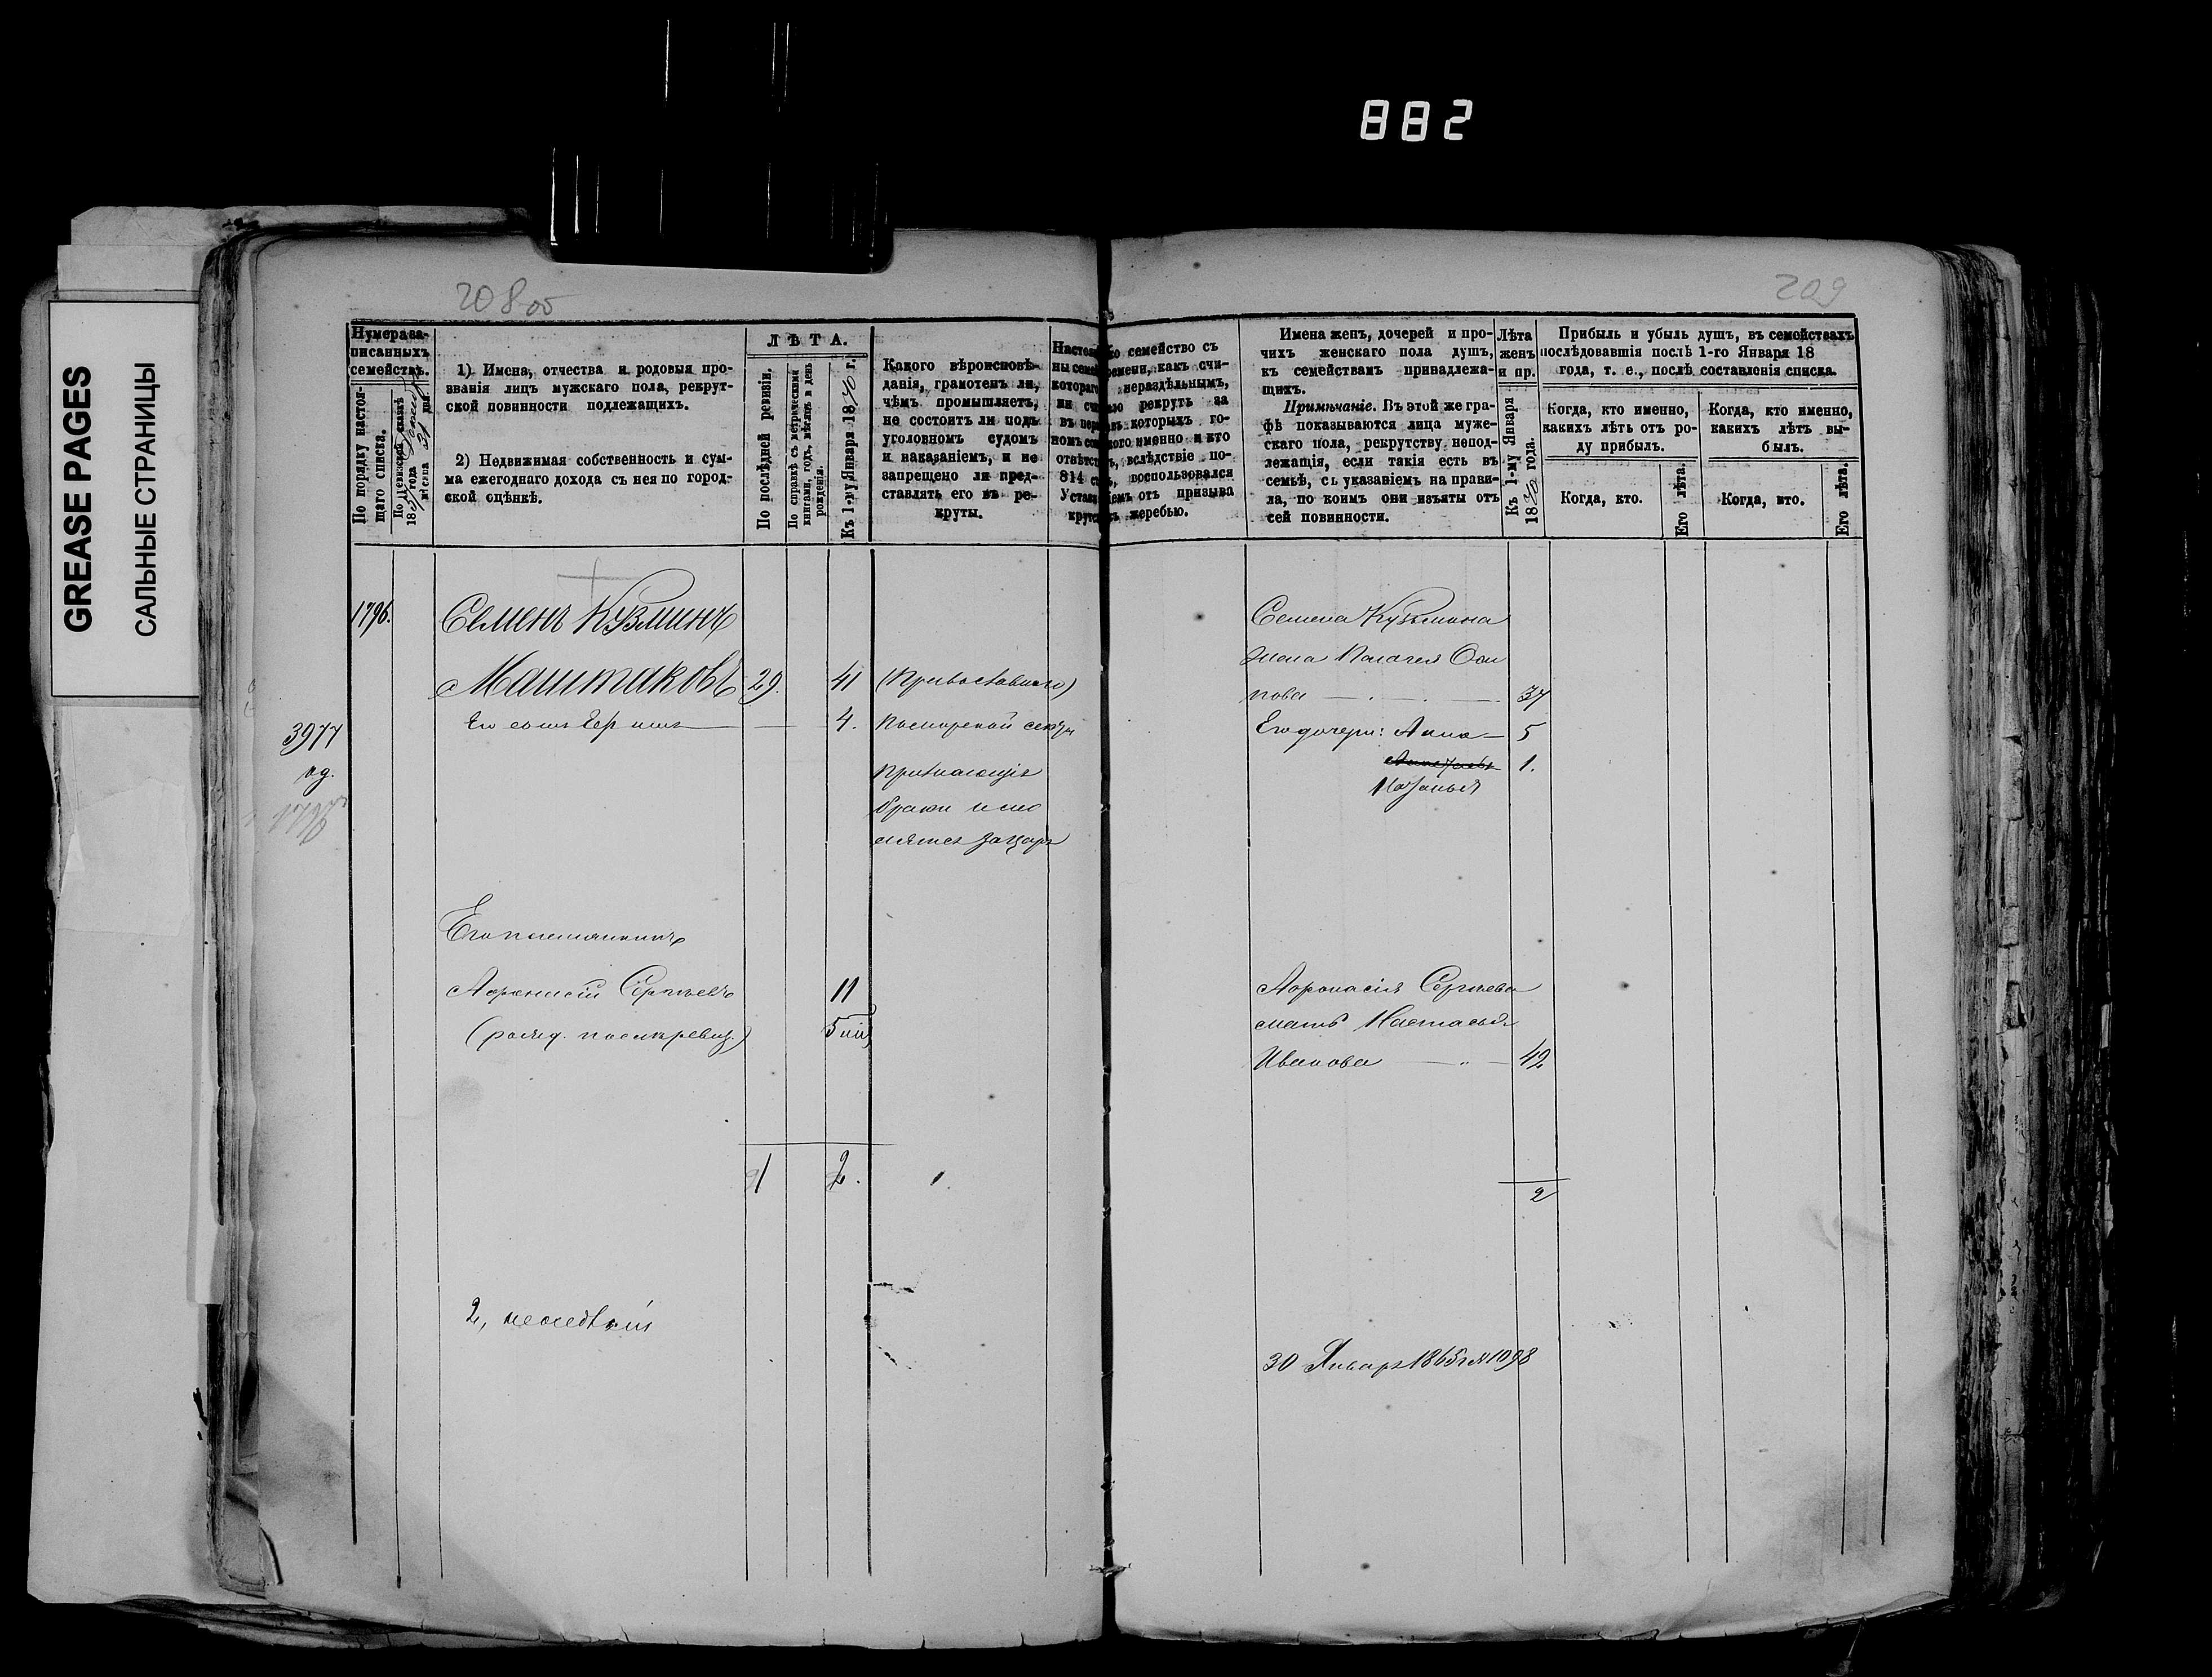 882
GREASE PAGES
САЛЬНЫЕ СТРАНИЦЫ
208 об
209
Нумера за-
писанныхъ
семействъ.
По порядку настоя-
щаго списка.
По ревизской сказкѣ
18 года
мѣсяца 31 дня.
1) Имена, отчества и родовыя про-
званія лицъ мужскаго пола, рекрут-
ской повинности подлежащихъ.
2) Недвижимая собственность и сум-
ма ежегоднаго дохода съ нея по город-
ской оцѣнкѣ.
ЛѢТА.
По послѣдней ревизіи.
По справкѣ съ метрическими
книгами, годъ, мѣсяцъ и день
рожденія.
Къ 1-му Января 1870 г.
Какого вѣроисповѣ-
данія, грамотенъ ли,
чѣмъ промышляетъ,
не состоитъ ли подъ
уголовномъ судомъ
и наказаніемъ, и не
запрещено ли пред-
ставлять его въ ре-
круты.
семейство съ
какъ счи-
нераздѣльнымъ,
рекрутъ за
которыхъ го-
именно и кто
вслѣдствіе по-
814 воспользовался
отъ призыва
жеребью.
Имена женъ, дочерей и про-
чихъ женскаго пола душъ,
къ семействамъ принадлежа-
щихъ.
Примѣчаніе. Въ этой же гра-
фѣ показываются лица муже-
скаго пола, рекрутству непод-
лежащія, если такія есть въ
семьѣ, съ указаніемъ на прави-
ла, по коимъ они изъяты отъ
сей повинности.
Лѣта
женъ
и пр.
Къ 1-му Января
1870 года.
Прибыль и убыль душъ, въ семействахъ
послѣдовавшія послѣ 1-го Января 18
года, т. е., послѣ составленія списка.
Когда, кто именно,
какихъ лѣтъ отъ ро-
ду прибылъ.
Когда, кто.
Его лѣта.
Когда, кто именно,
какихъ лѣтъ вы-
былъ.
Когда, кто.
Его лѣта.
1796. Семенъ Кузминъ
Маштаковъ 29. 41 (Православнаго)
Его сынъ 4. Поморской секты
3977
приемлющіе
браки и мо
лятся за Царя
Его племянникъ
Афонасій Сергѣевъ 11
(рожд. послѣ ревиз.) 5
1 2.
2,
Семена Кузьмина
жена Палагея Оси
пова 37
Его дочери: Анна 5
1.
Наталья
Афонасія Сергѣева
мать Настасья
Иванова 42
2
30 Января 1865 г № 1098